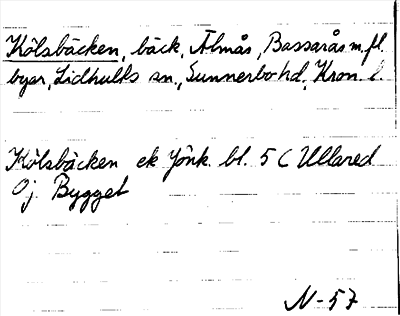 Kölsbäcken, bäck, Älmås, Bassarås m. fl.
byar, Lidhults sn., Sunnerbo hd, Kron. l.
Kölsbäcken ek Jönk. bl. 5 C Ullared
Oj. Bygget
N-57